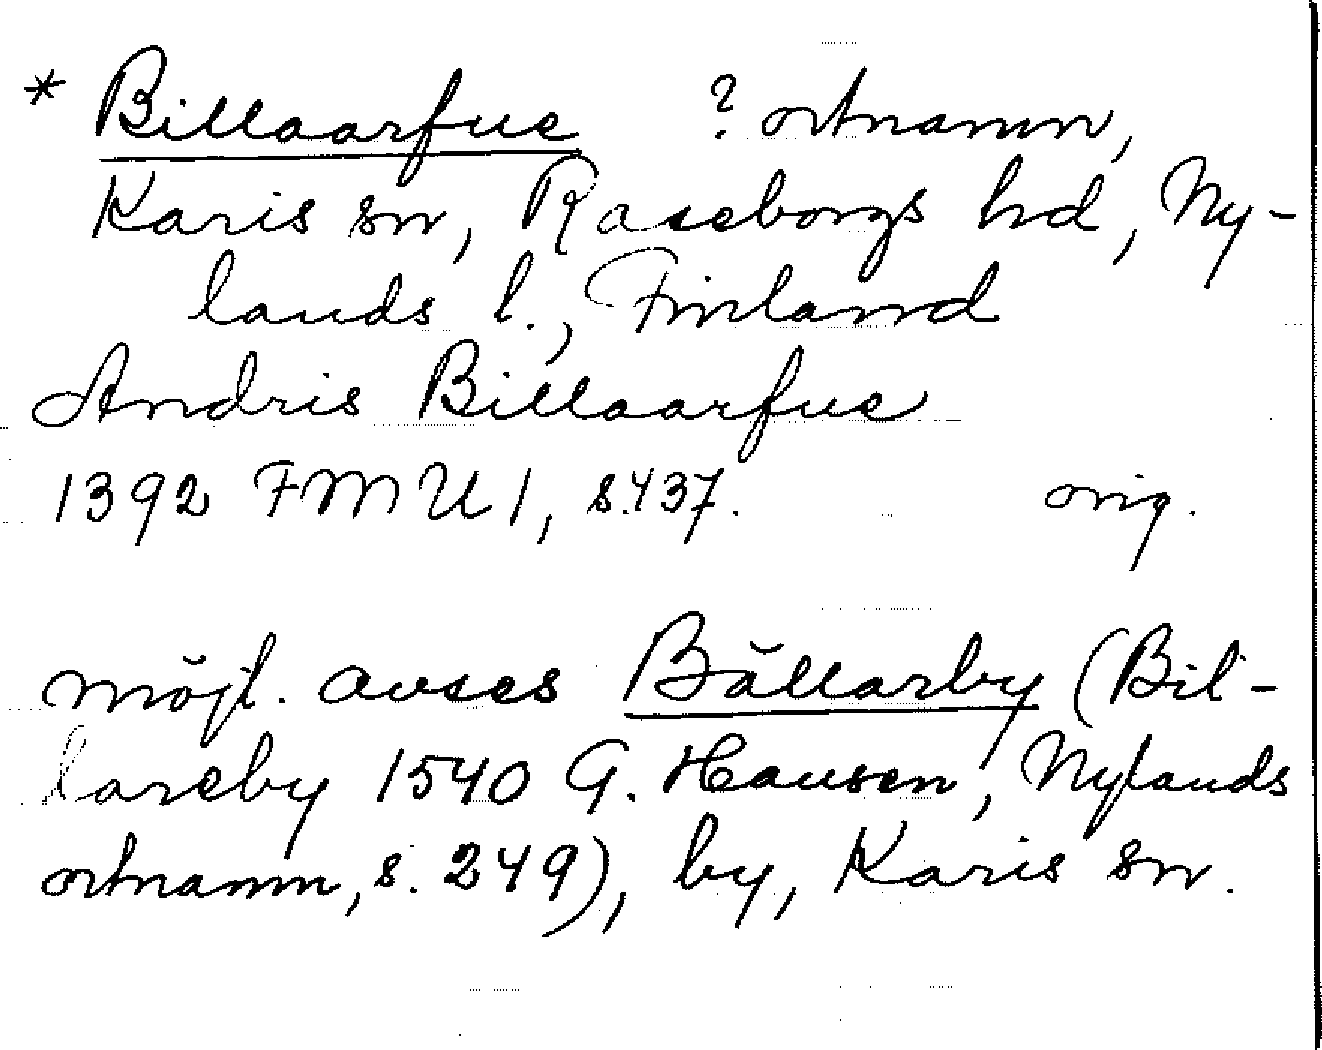 * Billaarfue ? ortnamn,
Karis sn, Raseborgs hd, Ny-
lands l., Finland
Andris Billaarfue
1392 FMU 1, s.437. orig.
möjl. avses Bällarby (Bil-
lareby 1540 G. Hausen, Nylands
ortnamn, s. 249), by, Karis sn.